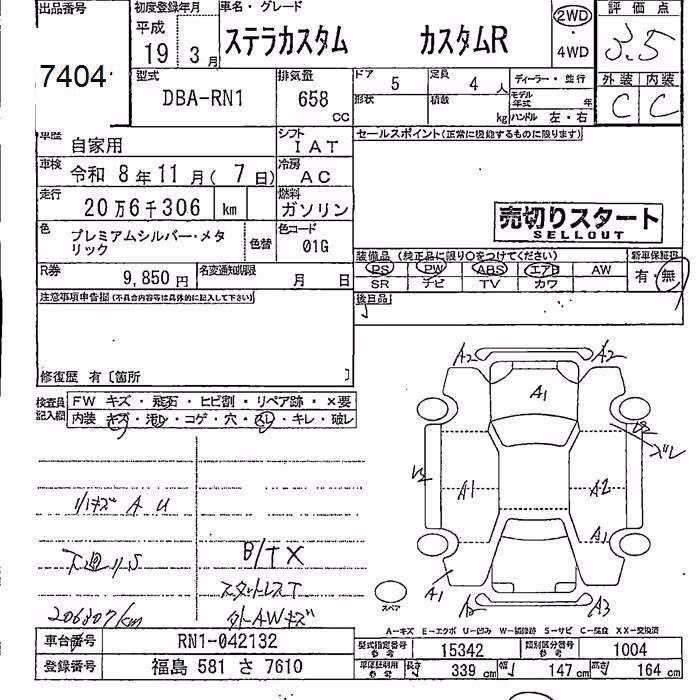 出品番号
7404
初度登録年月
平成
19年 3月
車名・グレード
ステラカスタム カスタムR
2WD
4WD
評価点
3.5
外装 内装
C C
型式
DBA-RN1
排気量
658
CC
ドア
5
定員
4人
形状
積数
kg
ディーラー・並行
モデル年式 年
ハンドル 左・右
車歴
自家用
シフト
IAT
セールスポイント(正常に機能するものに限ります)
車検
令和 8年11月( 7日)
冷房
AC
走行
20万6千306 km
燃料
ガソリン
売切りスタート
SELLOUT
色
プレミアムシルバー・メタリック
色替
色コード
01G
装備品 (純正品に限り○をつけてください)
新車保証書
PS PW ABS エアB AW
SR ナビ TV カワ
有・無
R券
9,850円
名変通知期限
月 日
後日品
注意事項申告欄(不具合内容等は具体的に記入して下さい)
修復歴 有〔箇所 〕
検査員記入欄
FW キズ・飛石・ヒビ割・リペア跡・×要
内装 キズ・汚レ・コゲ・穴・スレ・キレ・破レ
A2 A2
A1
A1 A2
A1
A1
A2 A3
ズレ
リハキズ A U
B/TX
下廻リS
スタットレスT
206307km
外AWキズ
スペア
A-キズ E-エクボ U-凹み W-補修跡 S-サビ C-腐食 XX-交換済
車台番号
RN1-042132
型式指定番号
参考
15342
類別区分番号
参考
1004
登録番号
福島 581 さ 7610
車庫証明用
参考
長さ 339 cm
幅 147 cm
高さ 164 cm